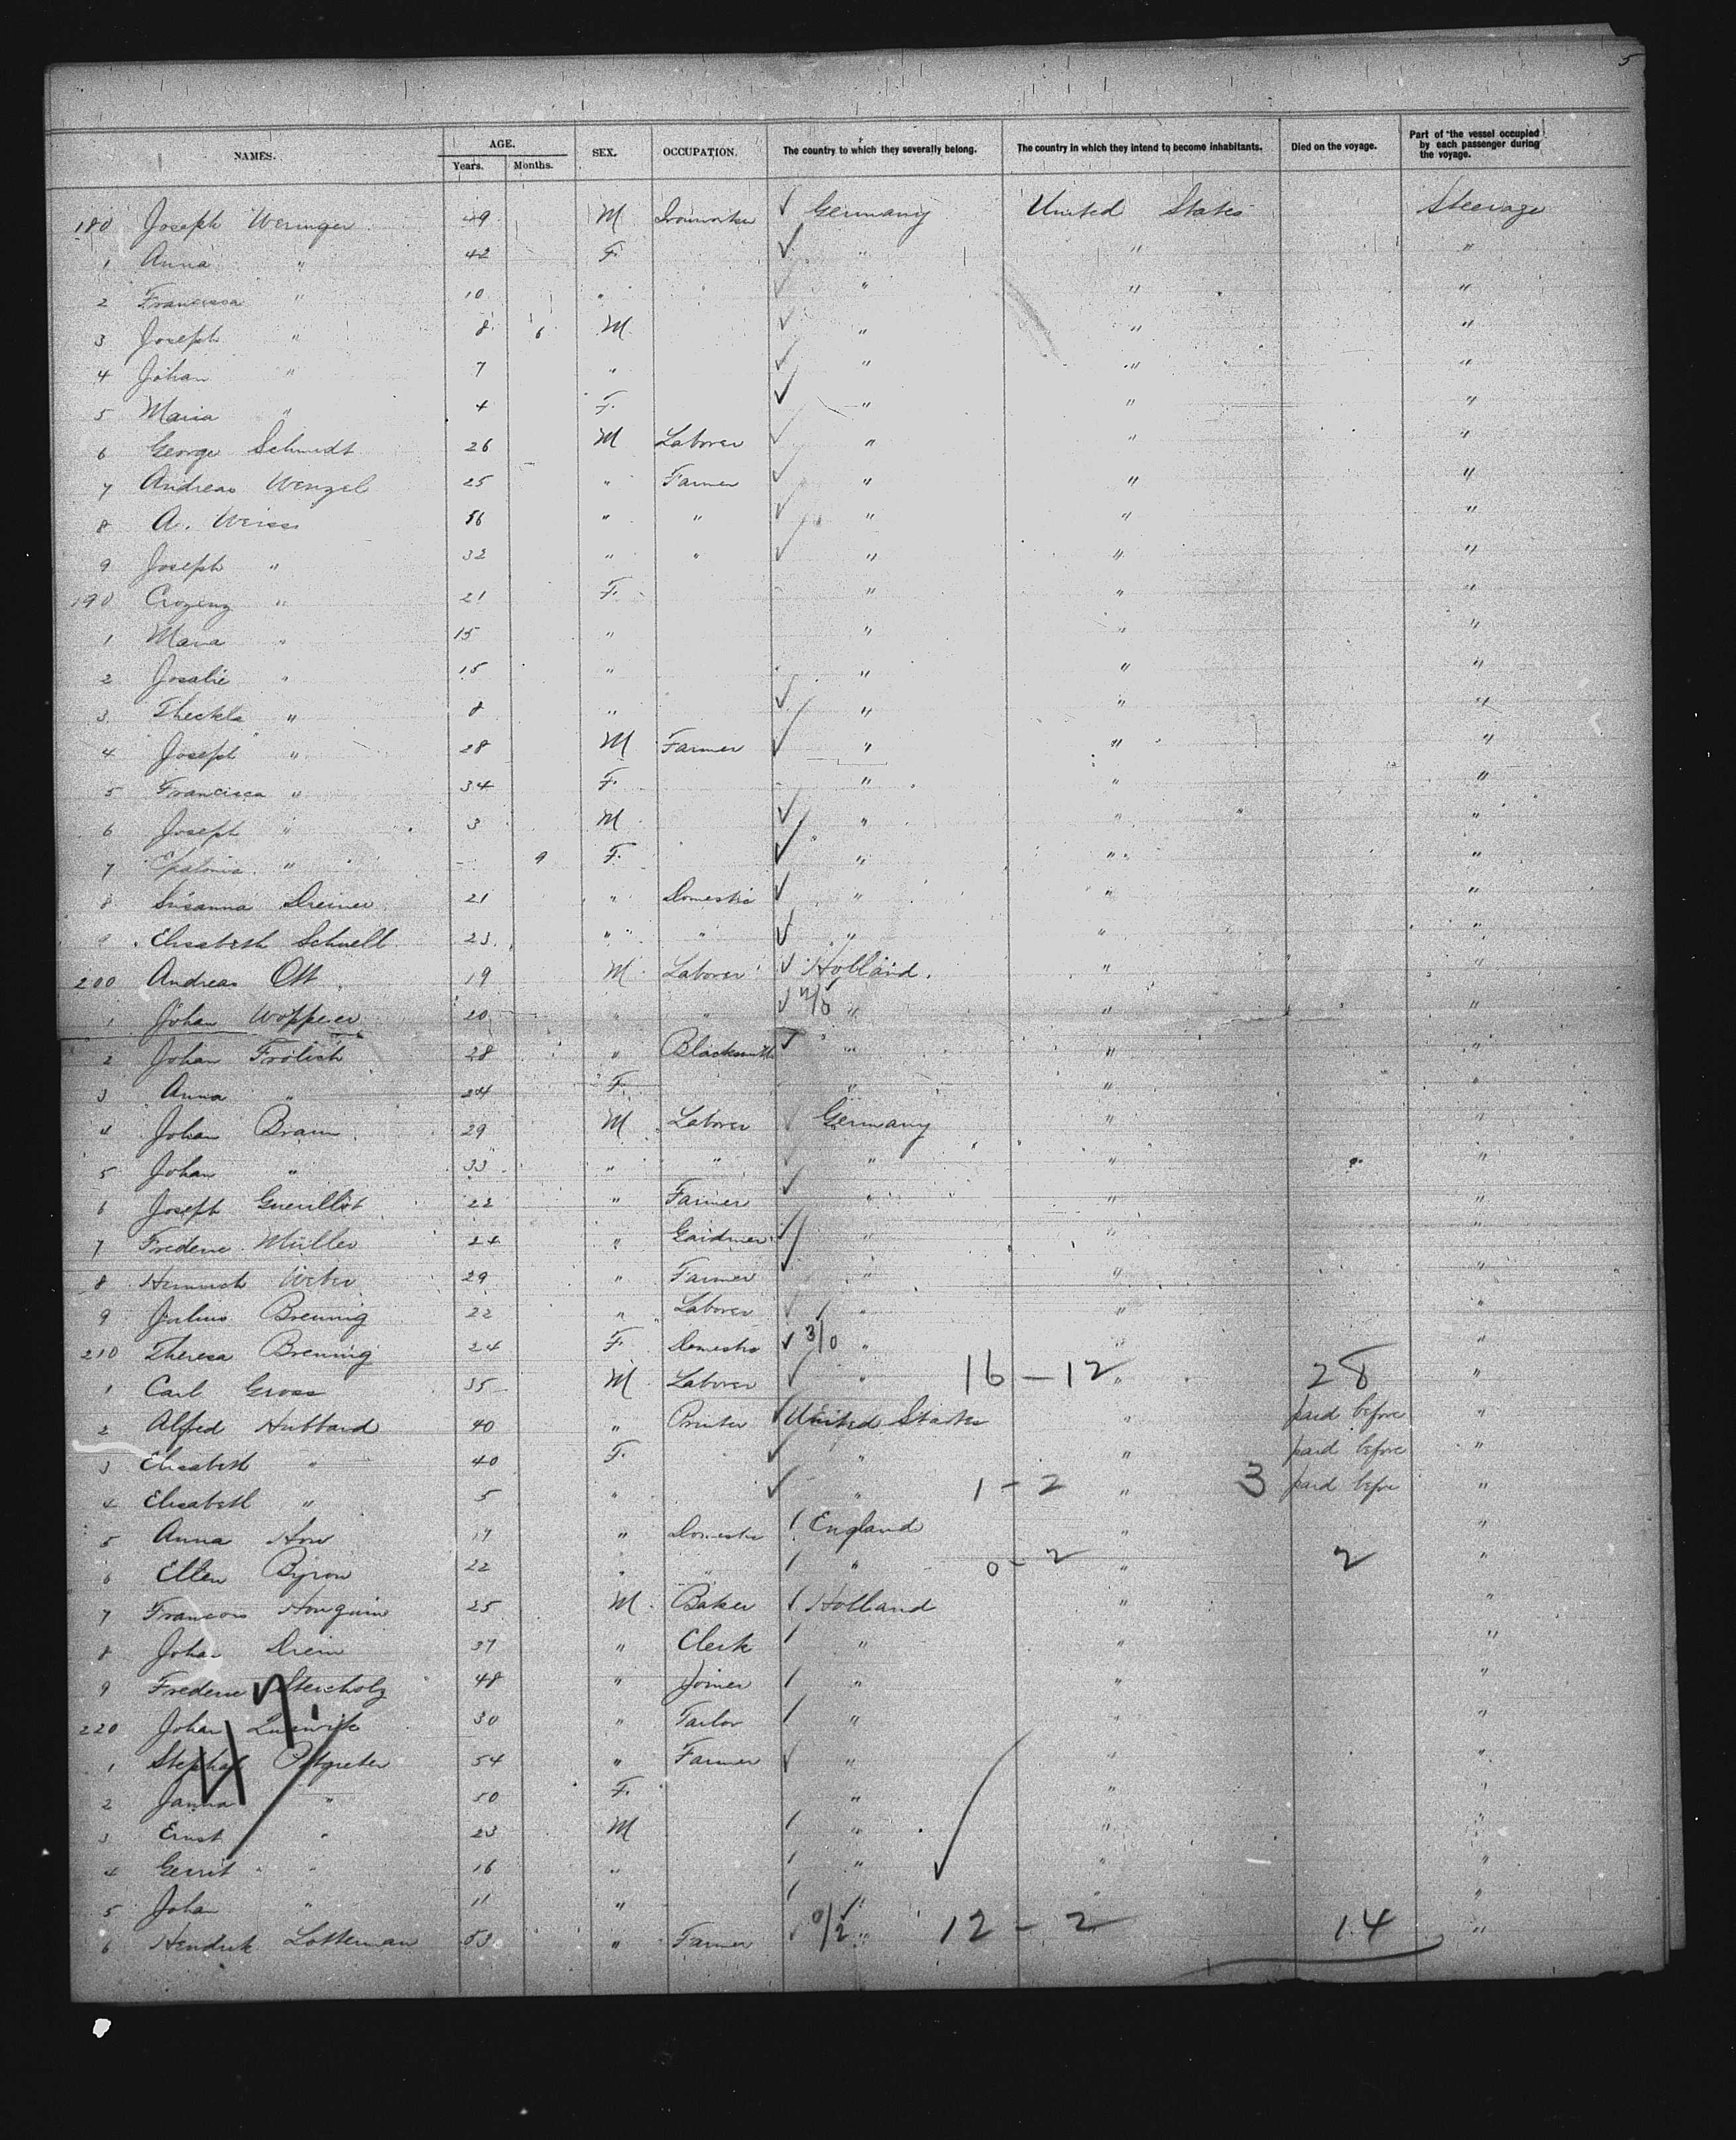 5
NAMES. AGE. Years. Months. SEX. OCCUPATION. The country to which they severally belong. The country in which they intend to become inhabitants. Died on the voyage. Part of the vessel occupied by each passenger during the voyage.
180 Joseph Weringer 49 M Ironworker ✓ Germany United States Steerage
1 Anna " 42 F. ✓ " " "
2 Francisca " 10 " ✓ " " "
3 Joseph " 8 6 M ✓ " " "
4 Johan " 7 " ✓ " " "
5 Maria " 4 F. ✓ " " "
6 George Schmidt 26 M Laborer ✓ " " "
7 Andreas Wenzel 25 " Farmer ✓ " " "
8 A. Weiss 56 " " ✓ " " "
9 Joseph " 32 " " ✓ " " "
190 " 21 F. " " "
1 Maria " 15 " " " "
2 Josalie " 15 " " " "
3 Theckla " 8 " ✓ " " "
4 Joseph " 28 M Farmer ✓ " " "
5 Francisca " 34 F. " " "
6 Joseph " 3 M ✓ " " "
7 " - 9 F. ✓ " " "
8 Susanna Dreiner 21 " Domestic ✓ " " "
9 Elisabeth Schnell 23 " " ✓ " " "
200 Andreas Ott 19 M Laborer ✓ Holland. " "
1 Johan 20 " " ✓ " " "
2 Johan Frölich 28 " Blacksmith ✓ " " "
3 Anna " 24 F. " " "
4 Johan Braun 29 M Laborer ✓ Germany " "
5 Johan " 33 " " ✓ " " "
6 Joseph Guerillot 22 " Farmer ✓ " " "
7 Frederic Müller 24 " Gardner ✓ " " "
8 Heinrich Weber 29 " Farmer ✓ " " "
9 Julius Brennig 22 " Laborer ✓ " " "
210 Theresa Brennig 24 F. Domestic ✓ 3/0 " " "
1 Carl Gross 35 M Laborer ✓ " 16 - 12 " 28 "
2 Alfred Hubbard 40 " Printer ✓ United States " paid before "
3 Elisabeth " 40 F. ✓ " " paid before "
4 Elisabeth " 5 " ✓ " 1 - 2 " 3 paid before "
5 Anna How 19 " Domestic / England " "
6 Ellen Byron 22 " " / " 0 - 2 " 2 "
7 Francois 25 M. Baker / Holland " "
8 Johan Drein 37 " Clerk / " " "
9 Frederic 48 " Joiner / " " "
220 Johan 30 " Tailor / " " "
1 Stephan 54 " Farmer ✓ " " "
2 Janna " 50 F. " " "
3 Ernst " 23 M / " " "
4 Gerrit " 16 " / " " "
5 Johan " 11 " / " " "
6 Hendrik Lotterman 53 " Farmer ✓ 0/2 " 12 - 2 14 "